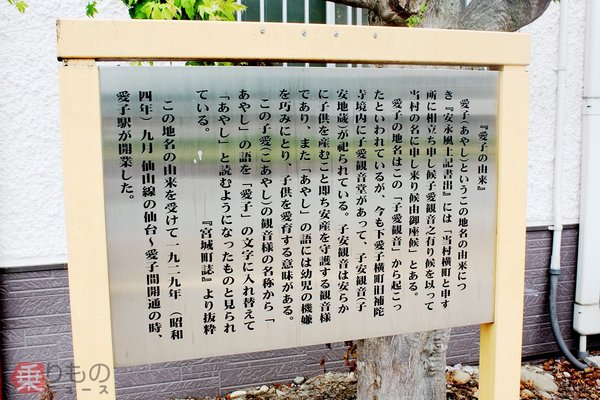 『愛子の由来』
愛子(あやし)というこの地名の由来につ
き『安永風土記書出』には「当村横町と申す
所に相立ち申し候子愛観音之有り候を以って
当村の名に申し来り候由御座候」とある。
愛子の地名はこの「子愛観音」から起こっ
たといわれているが、今も下愛子横町旧補陀
寺境内に子愛観音堂があって、子安観音(子
安地蔵)が祀られている。子安観音は安らか
に子供を産むこと即ち安産を守護する観音様
であり、また「あやし」の語には幼児の機嫌
を巧みにとり、子供を愛育する意味がある。
この子愛(こあやし)の観音様の名称から「
あやし」の語を「愛子」の文字に入れ替えて
「あやし」と読むようになったものと見られ
ている。
『宮城町誌』より抜粋
この地名の由来を受けて一九二九年(昭和
四年)九月仙山線の仙台~愛子間開通の時、
愛子駅が開業した。
乗りもの
ニュース